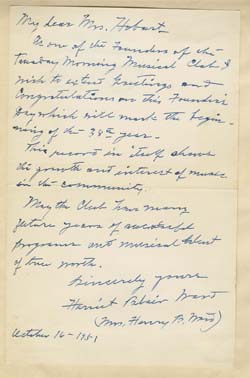 My dear Mrs. Hobart
As one of the Founders of the
Tuesday Morning Musical Club I
wish to extend Greetings and
Congratulations on this Founders
Day which will mark the begin-
ning of the 38th year.
This record in itself shows
the growth and interest of music
in the community.
May the Club have many
future years of successful
programs and musical talent
of true worth.
Sincerely yours
Harriet Blair Ward
(Mrs. Harry B. Ward)
October 16 - 1951